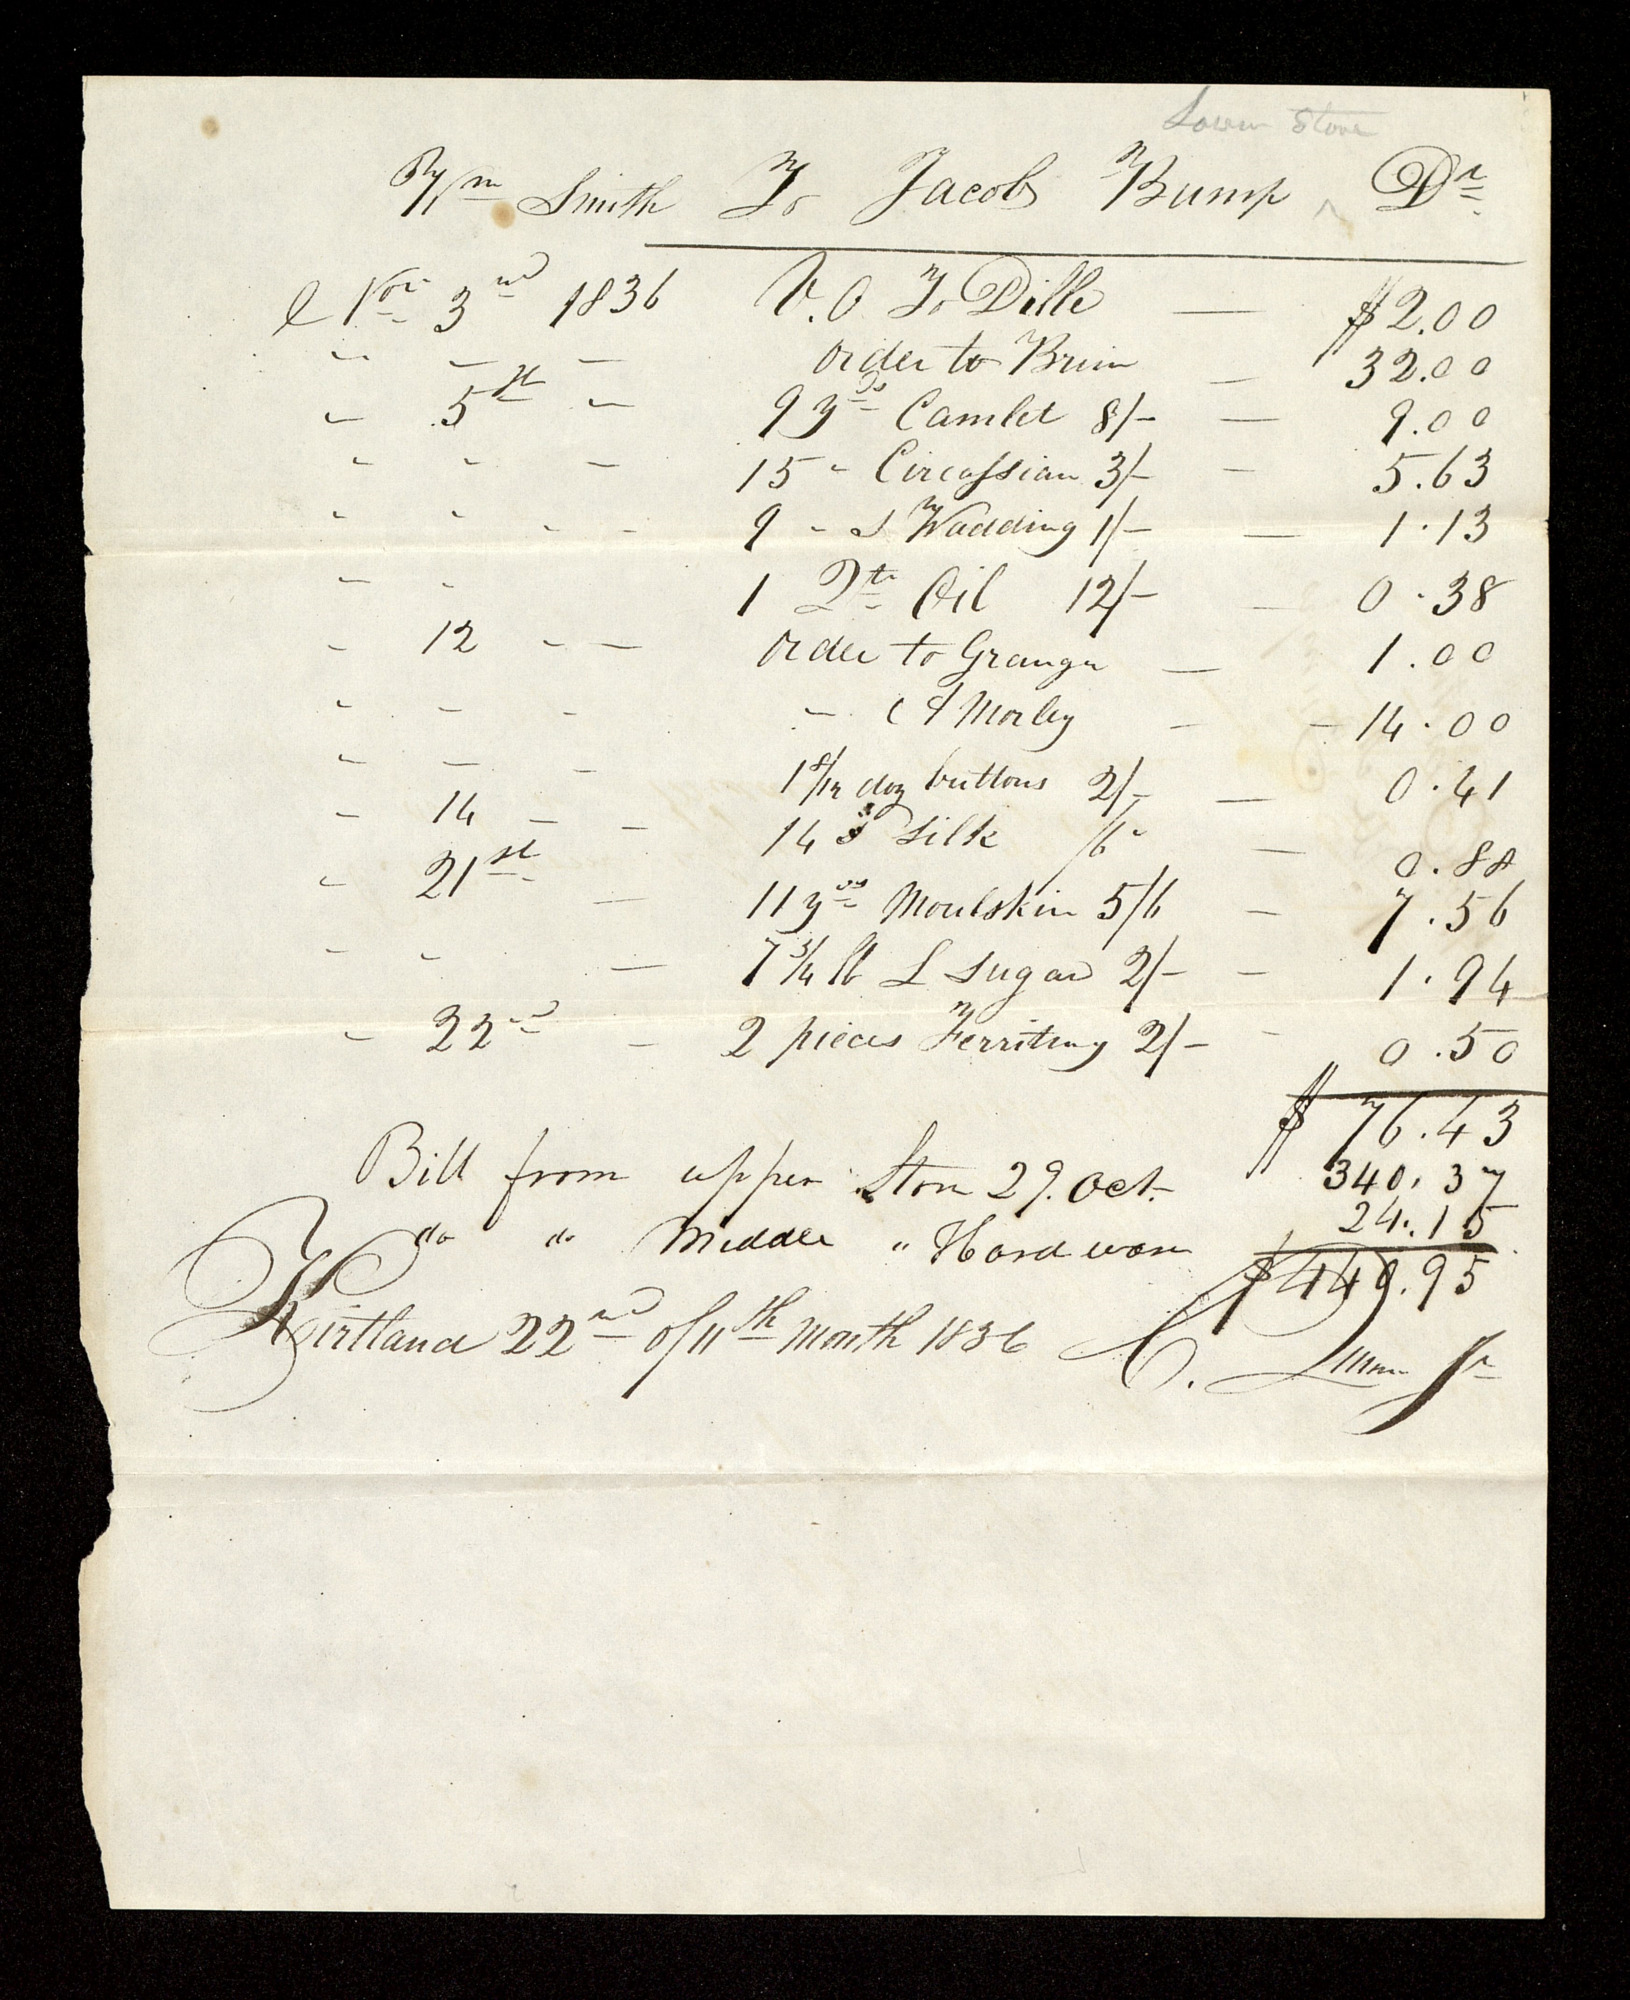 Lower Store
Wm Smith To Jacob Bump Dr
Nov 3rd 1836 V. O To Dille — $2.00
" — — order to Brim — 32.00
" 5st " 9 yds Camlet 8/- — 9.00
" " — 15 " Circassian 3/- — 5.63
" " " " 9 " S Wadding 1/- — 1.13
" " 1 Qt Oil 12/- — 0.38
" 12 " — order to Granger — 1.00
" " " " C A Morley — 14.00
" — — 1 8/12 doz buttons 2/- — 0.41
" 14 — — 14 s silk /6 — 0.88
" 21st — 11 yds Moulskin 5/6 — 7.56
" " — 7 3/4 lb L sugar 2/- — 1.94
" 22nd — 2 pieces Ferriting 2/- — 0.50
$ 76.43
Bill from upper Store 29. Oct. 340.37
do do Middle " Hardware 24.15
$440.95
Kirtland 22nd of 11th Month 1836 Jr